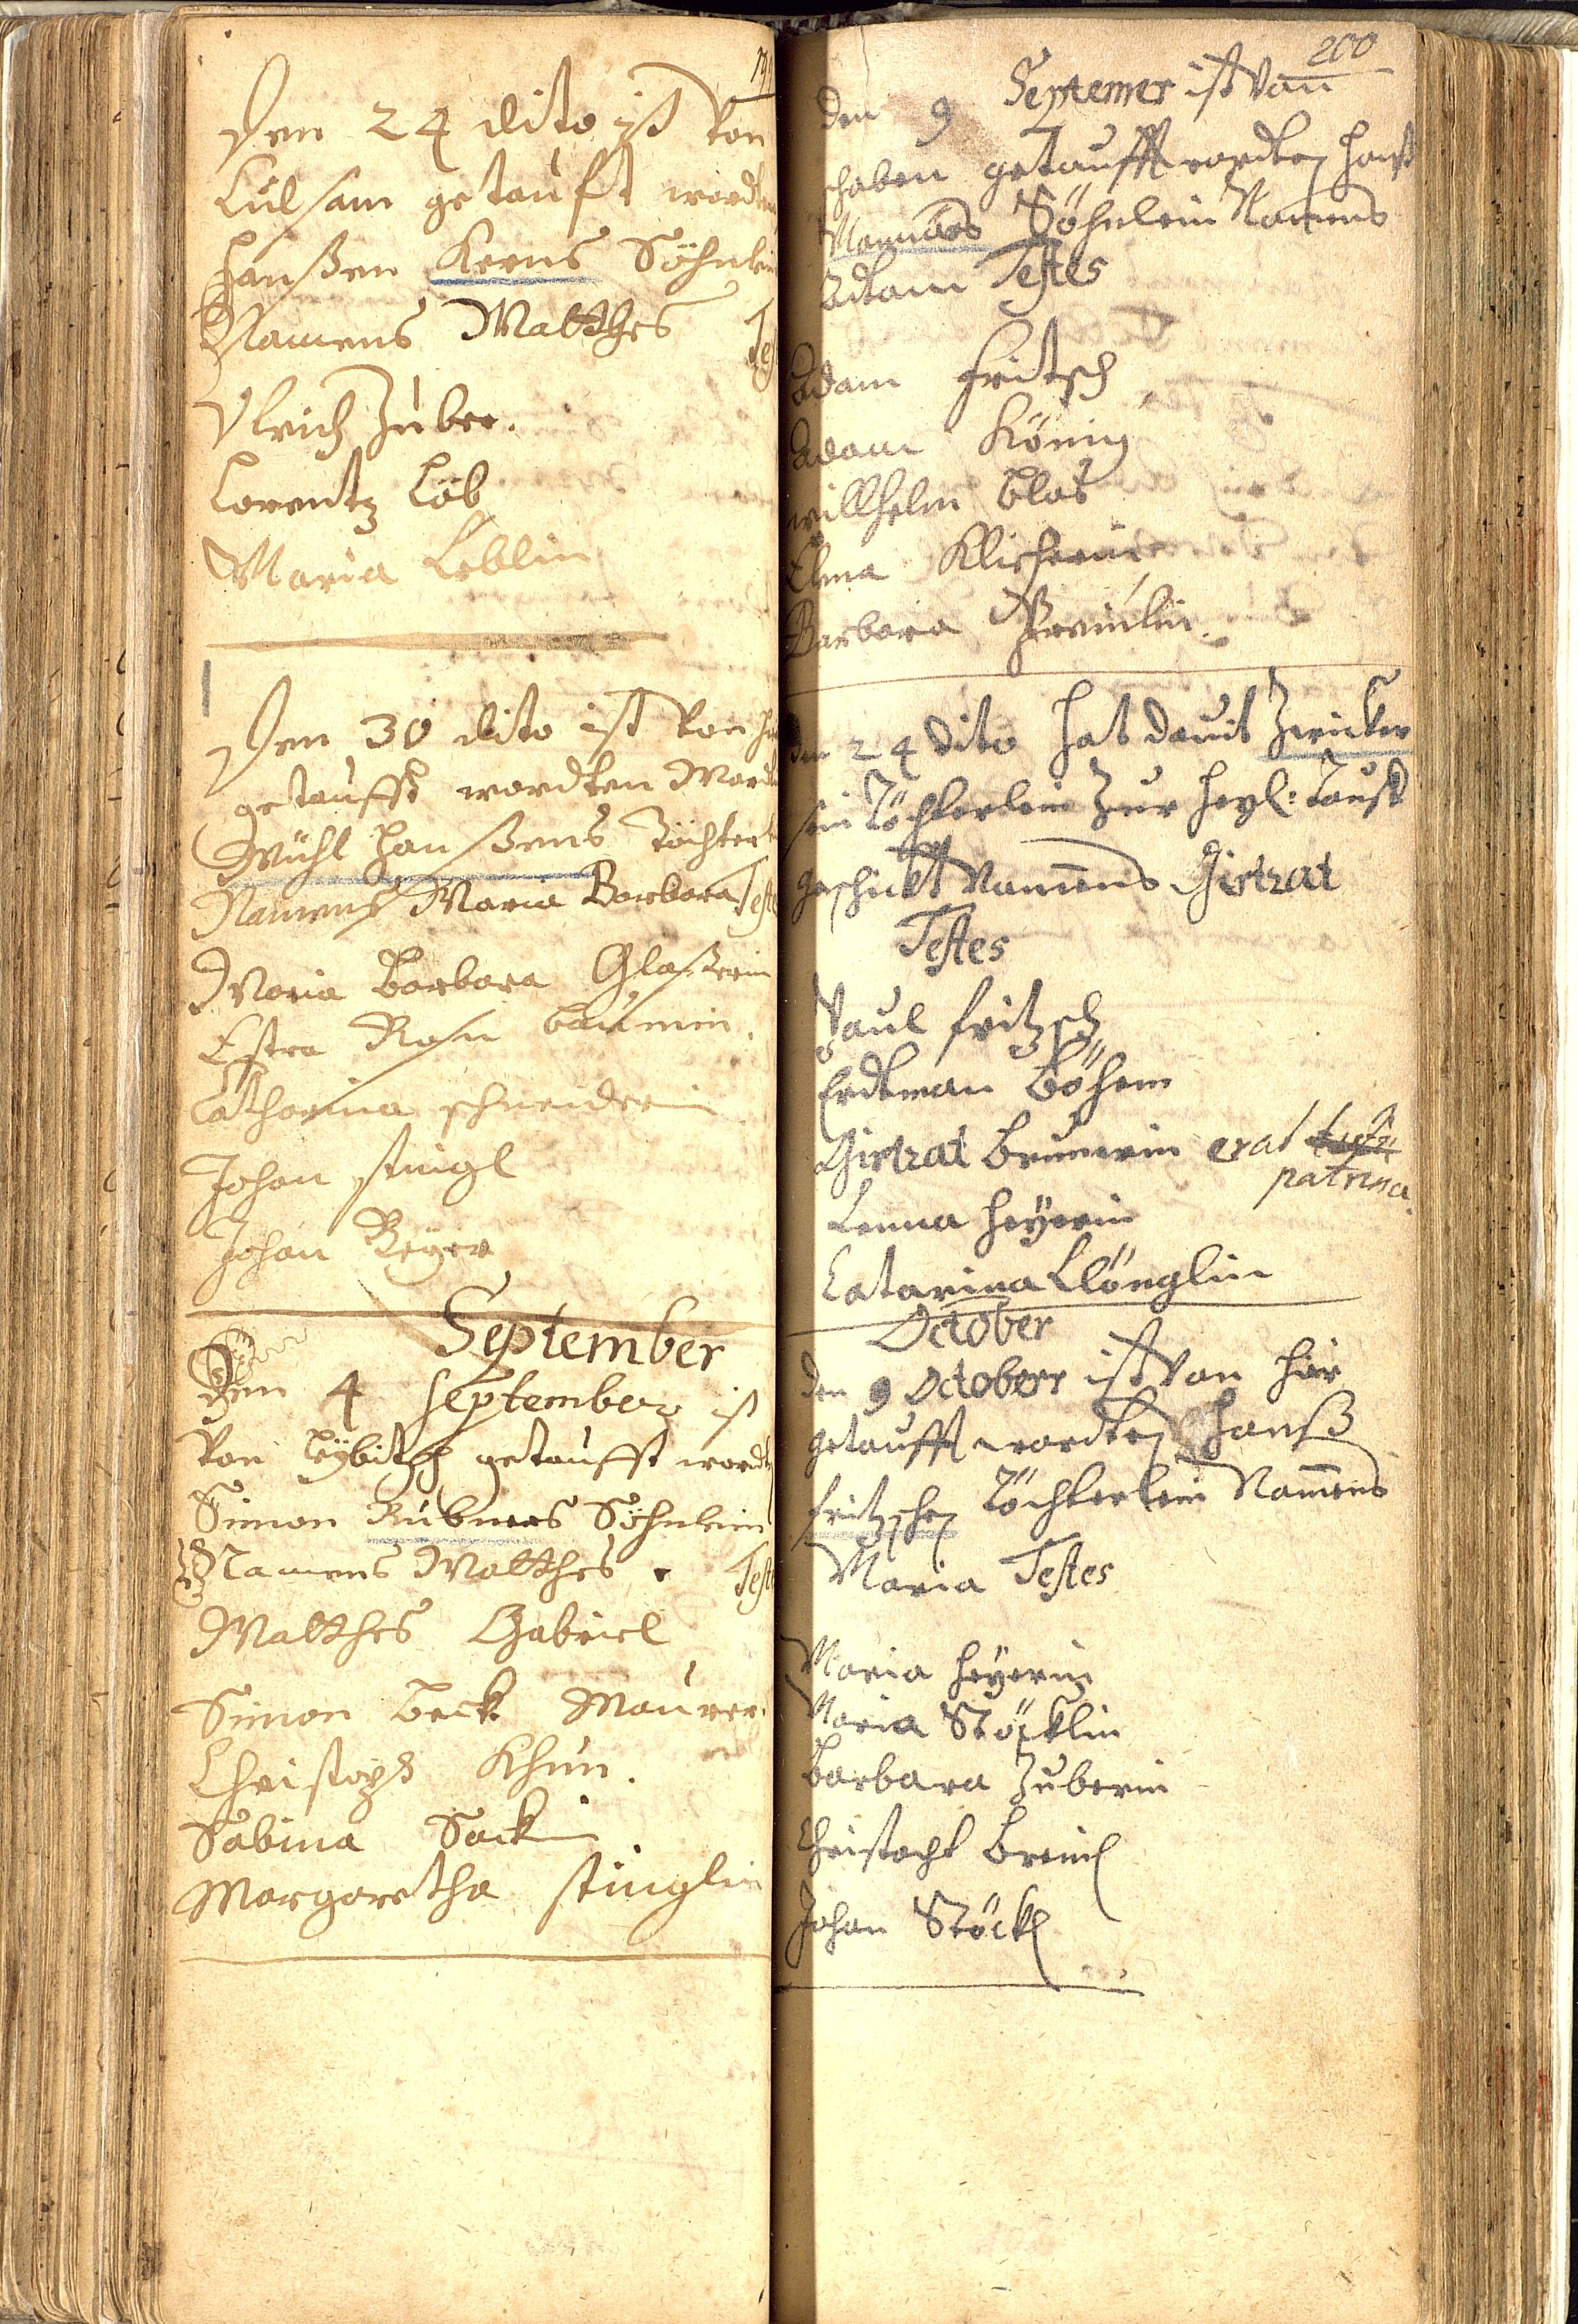 Den 24 dito ist von
Culsam getauft word
Hanßen Kerns Söhnlein
Namens Matthes Tes
Vlrich Zuber.
Lorentz Löb
Maria Leblin
Den 30 dito ist von
getaufft wordten
Mühl Hanßens Töchter
Namens Maria Barbara Teste
Maria Barbara Glaßerin
Estra Rosn baumin.
Catharina schneiderin
Johan stingl
Johan Beyer
September
Den 4 September ist
von Leybitsch getaufft wordt
Simon Rubners Söhnlein
Namens Matthes. Teste
Matthes Gabriel
Simon Beck Maurer.
Christoph Khun.
Sabina Sackin
Margaretha stinglin
200
den 9 Septemer ist Von
schaben getaufft wordten Hanß
Söhnlein Namens
Adam Testes
Adam Fritsch
Adam König
willhelm blos
Barbara
den 24 dito hat dauit Zwicker
sein Töchterlein Zur heyl: Tauff
geschickt Namens Girtrat
Testes
Paul fritzsch
Erdtman Böhem
Girtrat Brunerin erat
patrina
Lenna heyerin
Catarina
October
den 9 Octoberr ist Von hir
getaufft wordten Hanß
fritzschen Töchterlein Namens
Maria Testes
Maria heyerin
Maria Stöcklin
Barbara Zuberin
Christoph breinl
Johan Stöckl